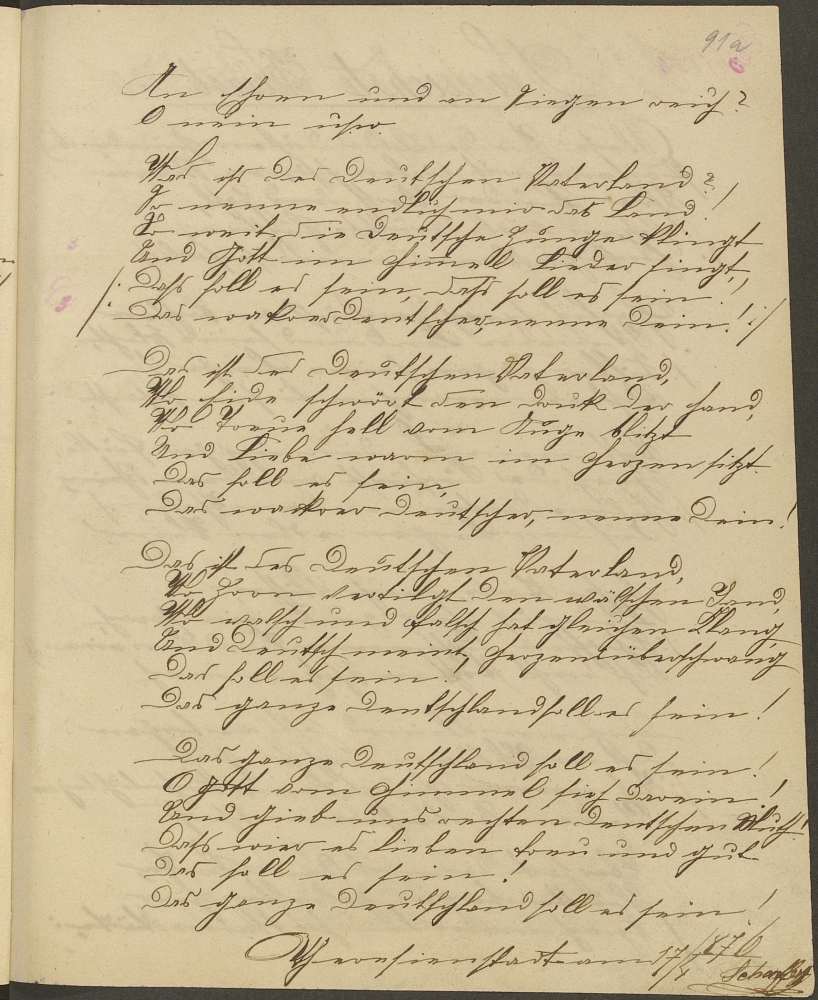 91a
An Ehren und an Siegen reich?
O nein usw.
Was ist des Deutschen Vaterland?
So nenne endlich mir das Land!
So weit die deutsche Zunge klingt
Und Gott im Himmel Lieder singt,
/: Dass soll es sein, dass soll es sein
Das wakrer Deutscher, nenne Dein! :/
Das ist des Deutschen Vaterland,
Wo Eide schwört den Druk der Hand,
Wo Treue hell vom Auge blitzt
Und Liebe warm im Herzen sitzt.
Das soll es sein,
Das wackrer Deutscher, nenne Dein!
Das ist des Deutschen Vaterland,
Wo Zorn vertilgt den wälschen Tand,
Wo walsch und falsch hat gleichen Klang,
Und Deutsch meint, Herzensüberschwang
Das soll es sein!
Das ganze Deutschland soll es sein!
Das ganze Deutschland soll es sein!
O Gott vom Himmel sieh darein!
Und gieb uns rechten Deutschen Muth!
Dass wier es lieben treu und gut
Das soll es sein!
Das ganze Deutschland soll es sein!
Theresienstadt am 17/ 1876